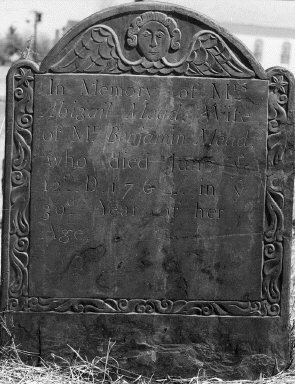 In Memory of Mrs
Abigail Mead Wife
of Mr Benjamin Mead
who died
12th D 176 in ye
Year of her
Age